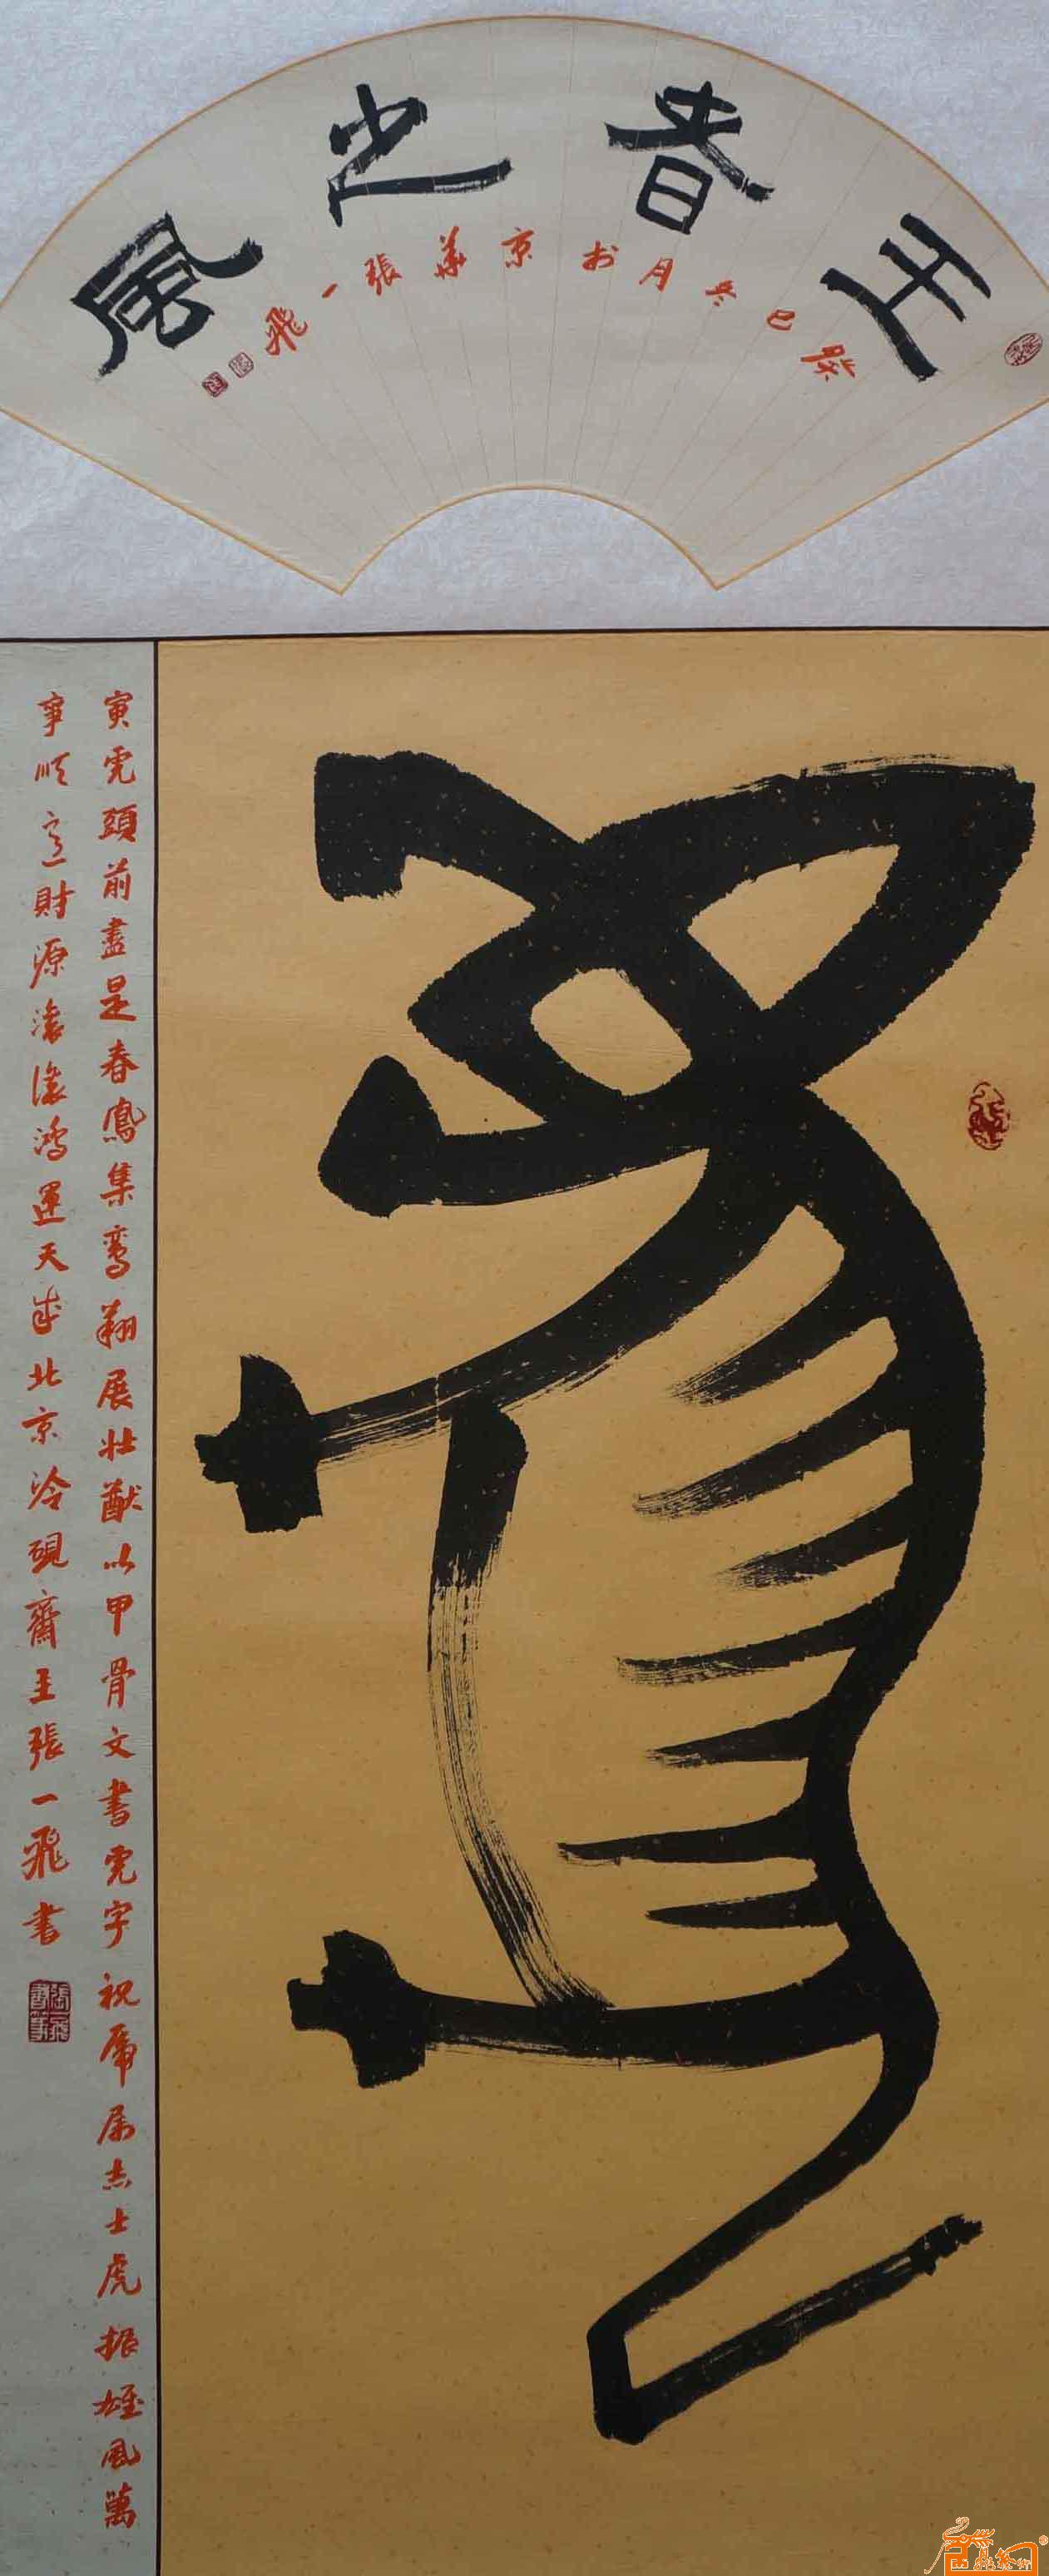 王者之風
癸巳冬月於京華張一飛
虎
寅虎頭前盡是春鳳集鸞翔展壯猷以甲骨文書虎字祝虎屬志士虎振雄風萬
事順意財源滾滾鴻運天成北京冷硯齋主張一飛書